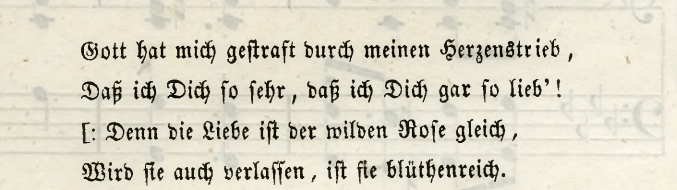 Gott hat mich gestraft durch meinen Herzenstrieb,
Daß ich Dich so sehr, daß ich Dich gar so lieb'!
[: Denn die Liebe ist der wilden Rose gleich,
Wird sie auch verlassen, ist sie blüthenreich.